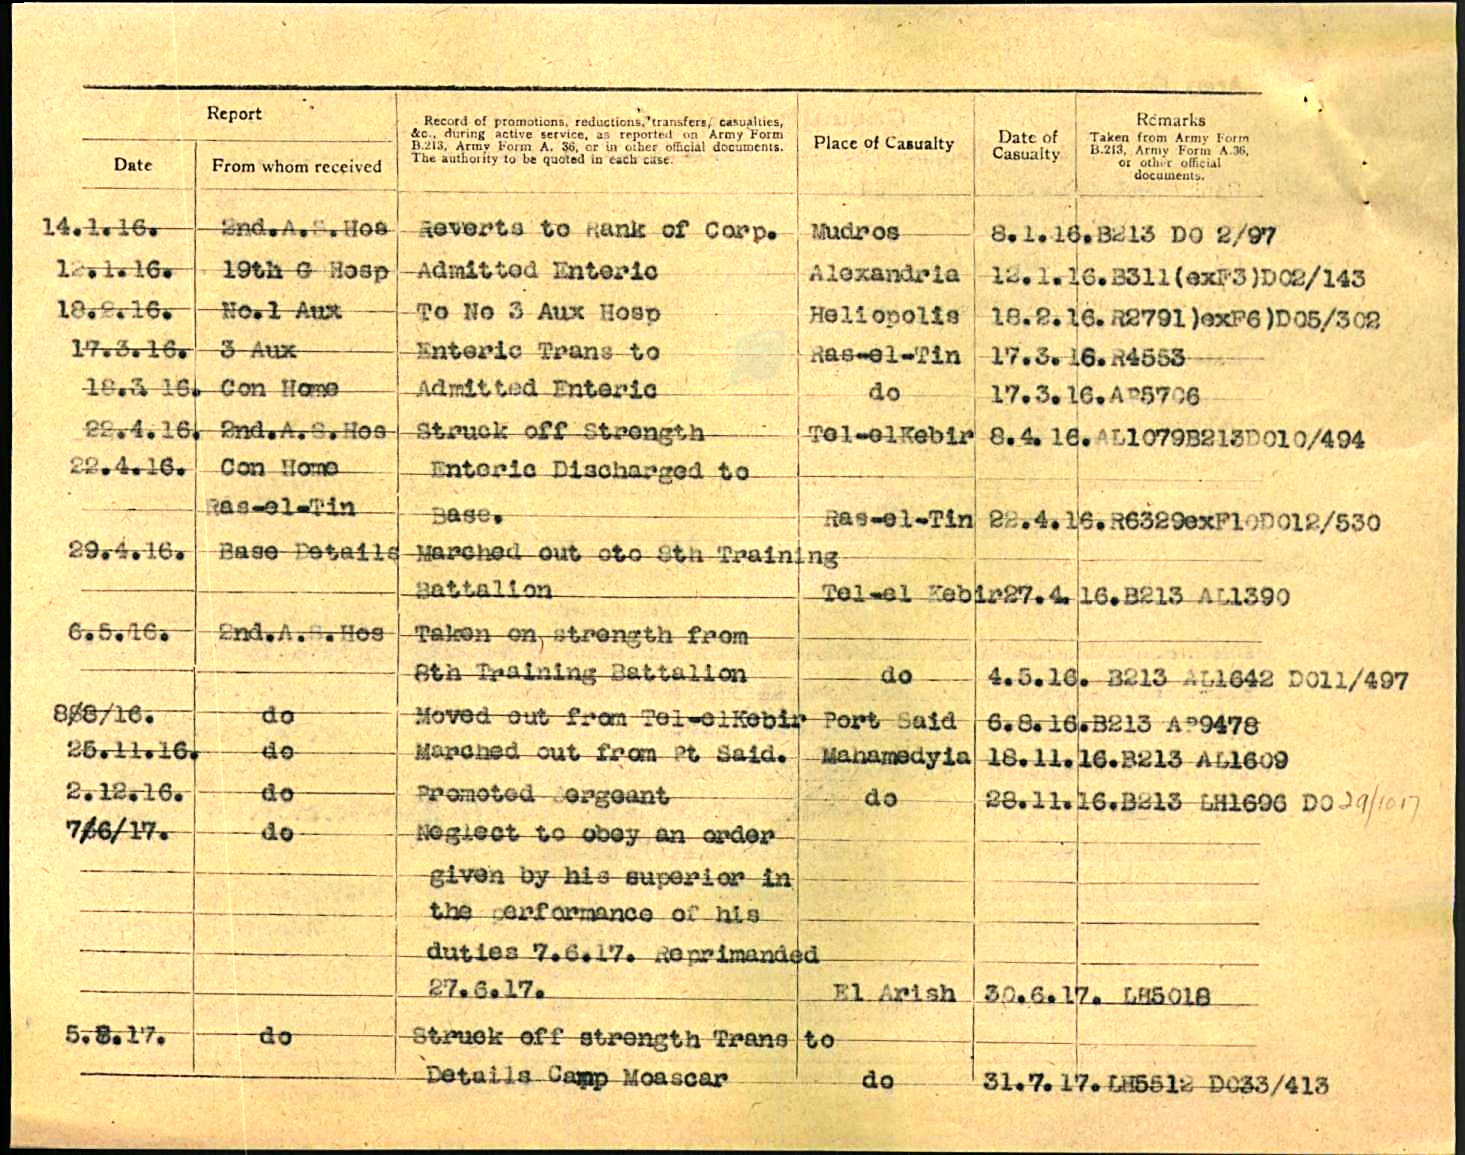 Report
Record of promotions, reductions, transfers, casualties,
&c., during active service, as reported on Army Form
B.213, Army Form A. 36, or in other official documents.
The authority to be quoted in each case.
Place of Casualty
Date of
Casualty
Remarks
Taken from Army Form
B.213, Army Form A.36,
or other official
documents.
Date
From whom received
14.1.16. 2nd.A.S.Hos Reverts to Rank of Corp. Mudros 8.1.16.B213 DO 2/97
12.1.16. 19th G Hosp Admitted Enteric Alexandria 12.1.16.B311(exF3)DO2/143
18.2.16. No.1 Aux To No 3 Aux Hosp Heliopolis 18.2.16.R2791)exF6)DO5/302
17.3.16. 3 Aux Enteric Trans to Ras-el-Tin 17.3.16.R4553
18.3 16. Con Home Admitted Enteric do 17.3.16.AP5706
22.4.16. 2nd.A.S.Hos Struck off Strength Tel-elKebir 8.4.16.AL1079B213DO10/494
22.4.16. Con Home Enteric Discharged to
Ras-el-Tin Base. Ras-el-Tin 22.4.16.R6329exF10DO12/530
29.4.16. Base Details Marched out oto 8th Training
Battalion Tel-el Kebir27.4.16.B213 AL1390
6.5.16. 2nd.A.S.Hos Taken on strength from
8th Training Battalion do 4.5.16. B213 AL1642 DO11/497
8/8/16. do Moved out from Tel-elKebir Port Said 6.8.16.B213 AP9478
25.11.16. do Marched out from Pt Said. Mahamedyia 18.11.16.B213 AL1609
2.12.16. do Promoted Sergeant do 28.11.16.B213 LH1696 DO 29/1017
7/6/17. do Neglect to obey an order
given by his superior in
the performance of his
duties 7.6.17. Reprimanded
27.6.17. El Arish 30.6.17. LH5018
5.8.17. do Struck off strength Trans to
Details Camp Moascar do 31.7.17.LH5512 DO33/413